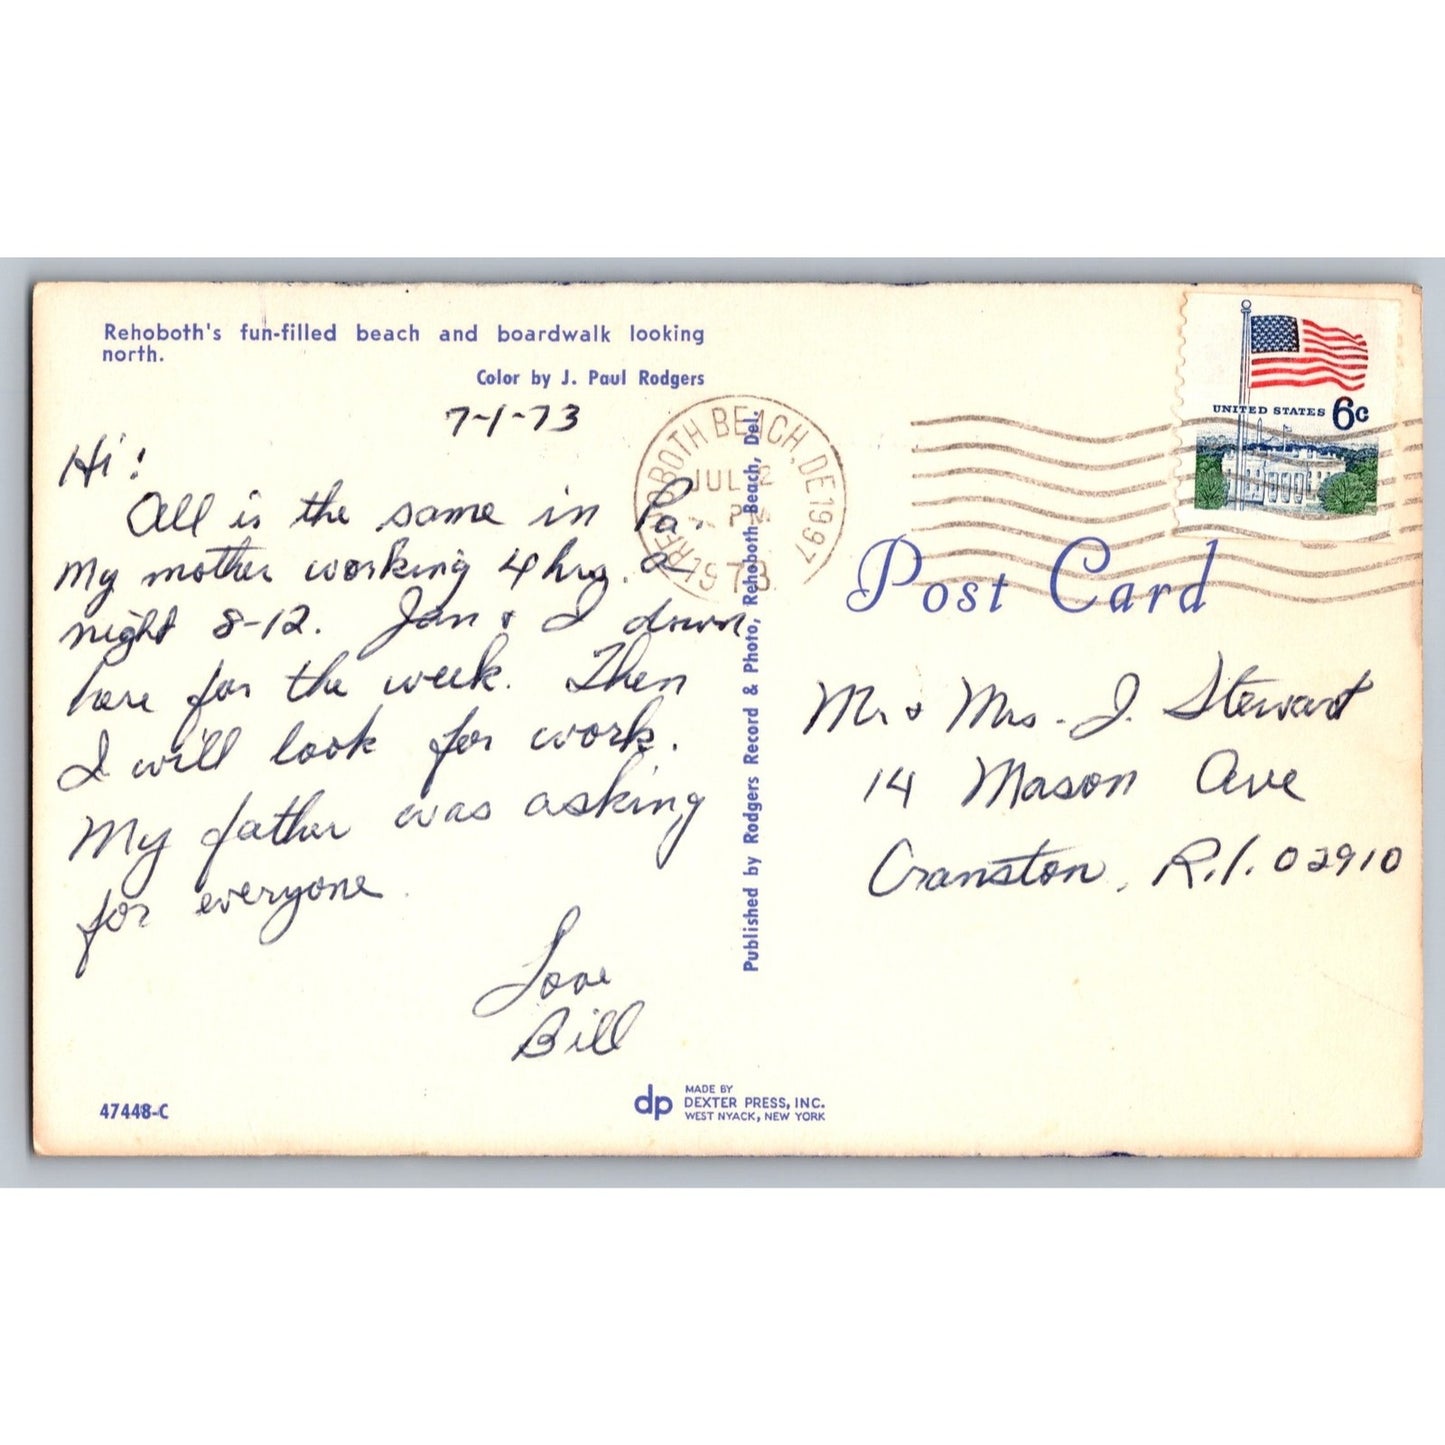 Rehoboth's fun-filled beach and boardwalk looking
north.
Color by J. Paul Rodgers
7-1-73
Hi!
All is the same in Pa.
My mother working 4 hrs. a
night 8-12. Jan & I down
here for the week. Then
I will look for work.
My father was asking
for everyone.
Love
Bill
47448-C
dp
MADE BY
DEXTER PRESS, INC.
WEST NYACK, NEW YORK
Published by Rodgers Record & Photo, Rehoboth Beach, Del.
REHOBOTH BEACH, DE 19971
JUL 2
PM
1973
UNITED STATES 6c
Post Card
Mr & Mrs. J. Stewart
14 Mason Ave
Cranston, R.I. 02910